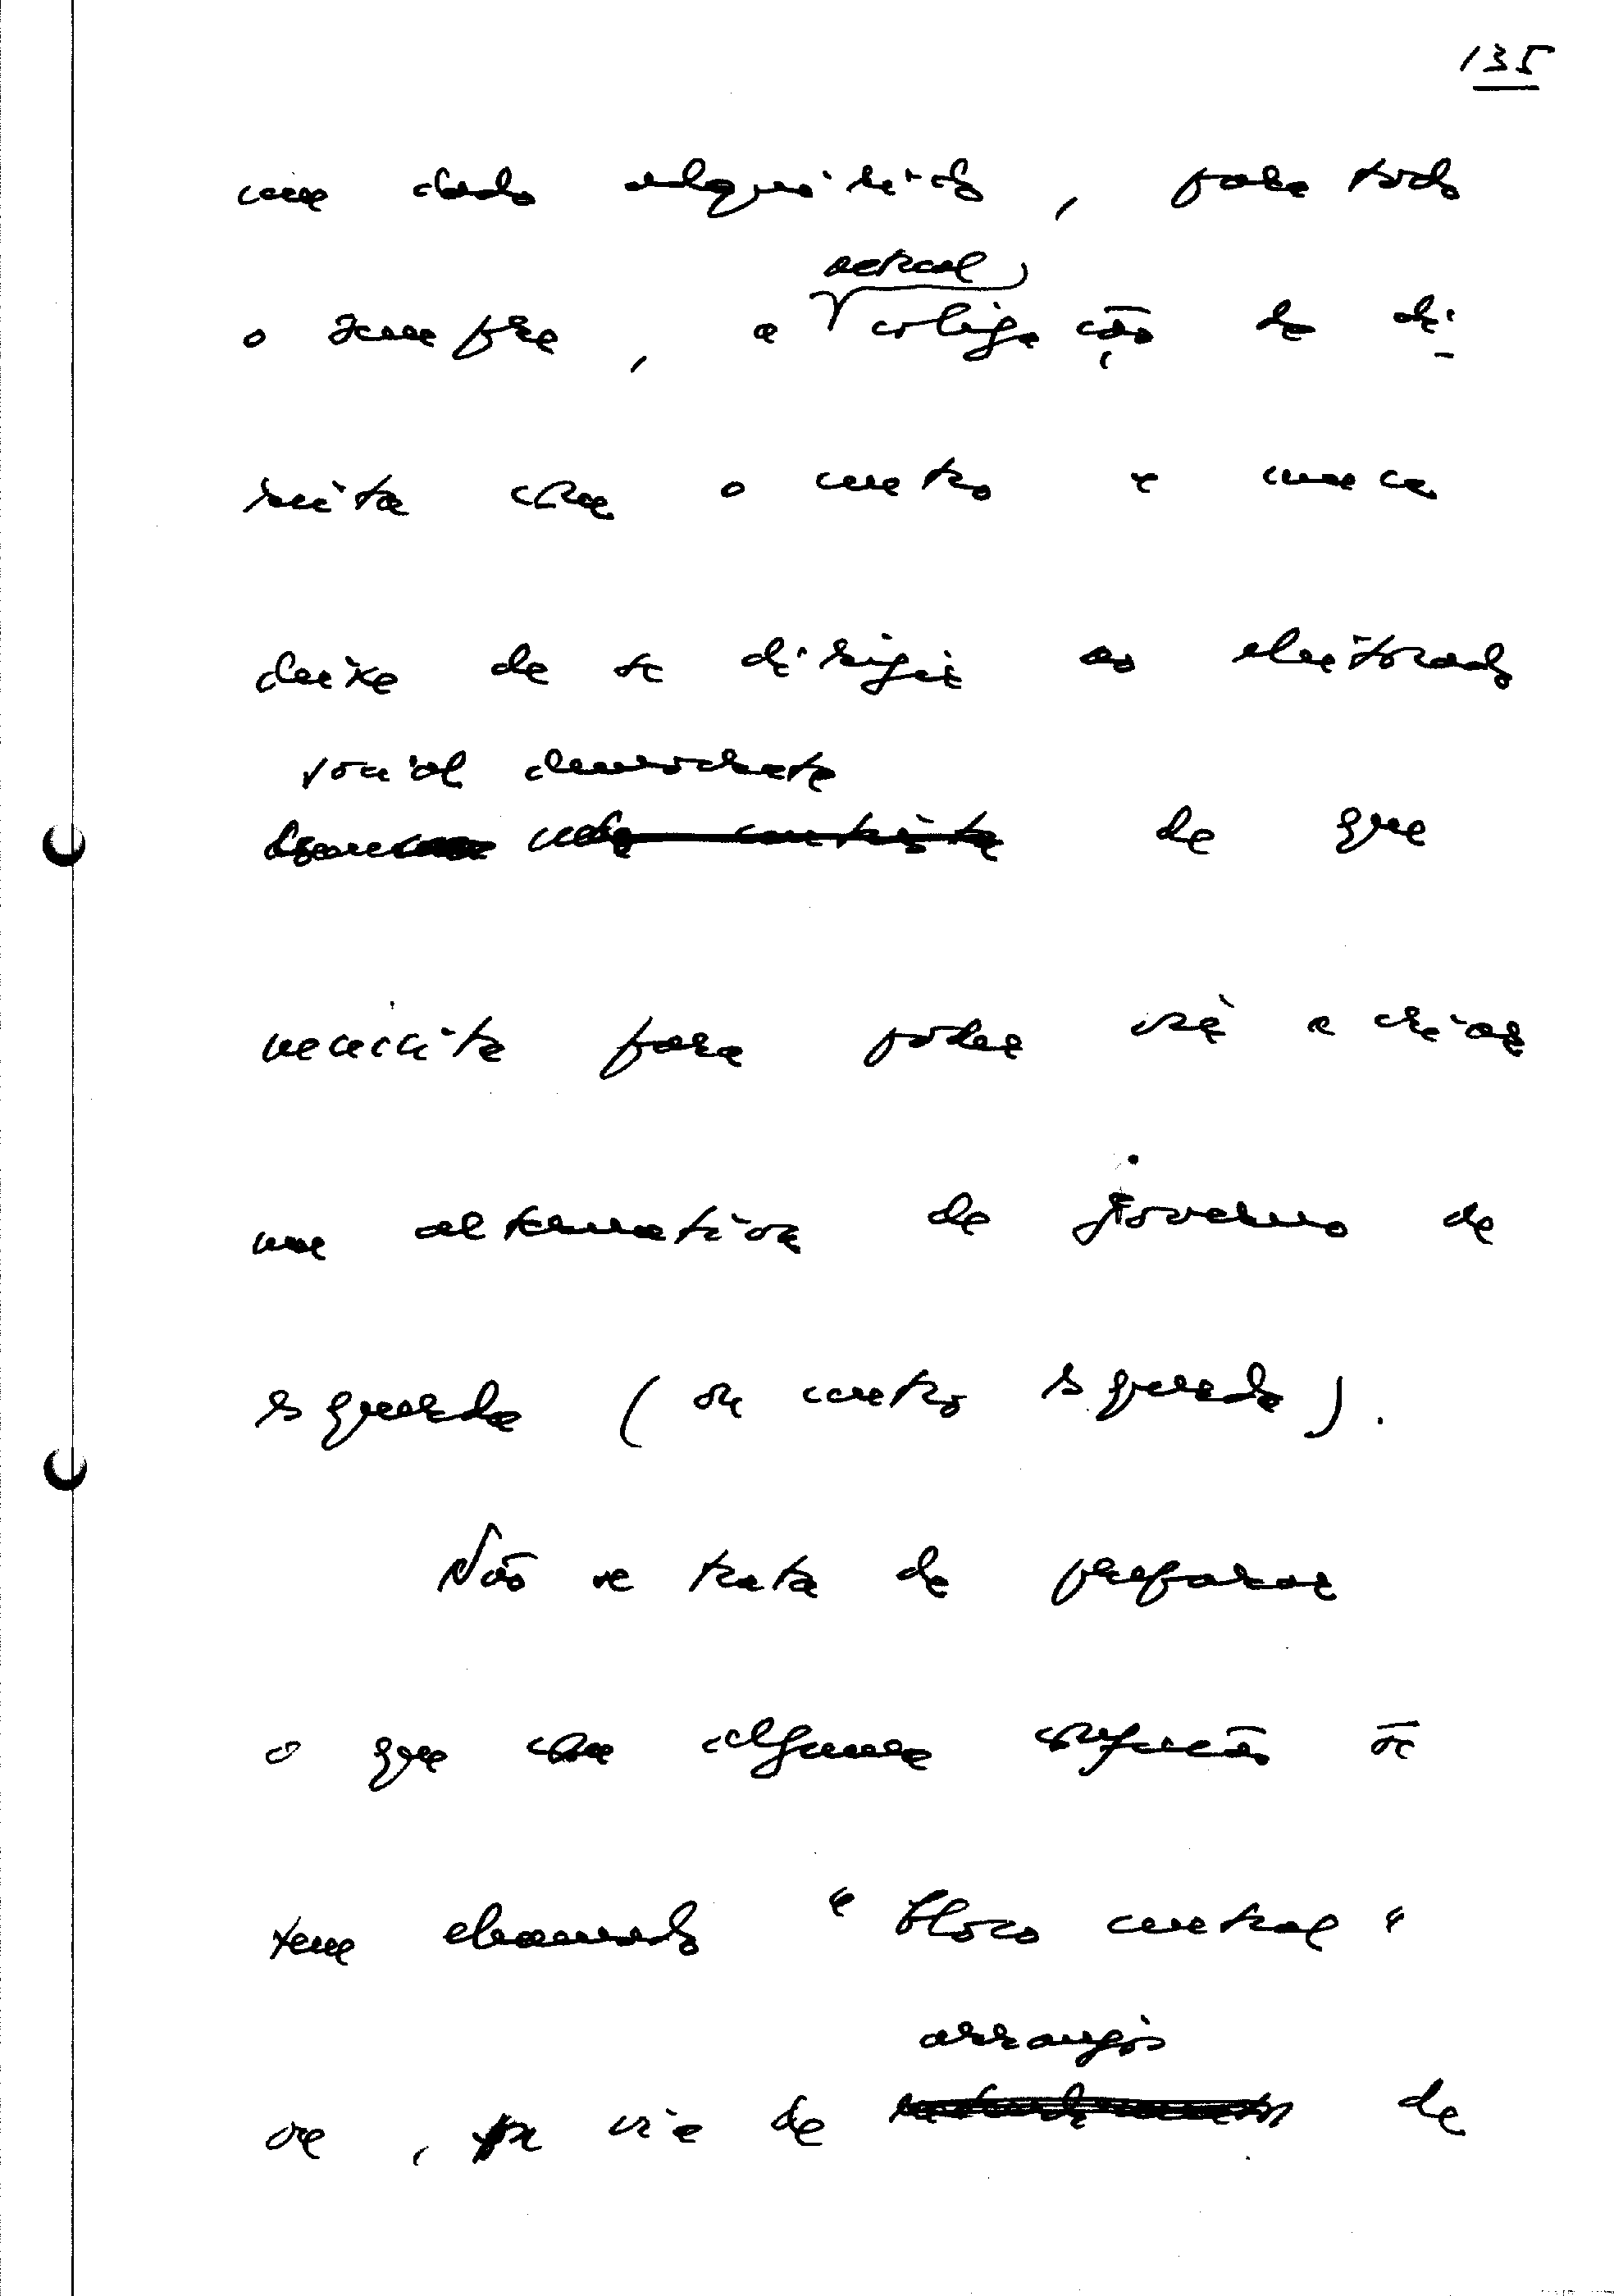 135
um dado adquirido, para todo
actual
o sempre, a coligação da di-
reita com o centro e nunca
deixe de se dirigir ao eleitorado
social democrata
de que
necessita para poder vir a criar
uma alternativa de governo de
esquerda (ou centro esquerda).
Não se trata de preparar
o que com alguma confusão se
tem chamado "bloco central"
ou, por via de de
arranjos